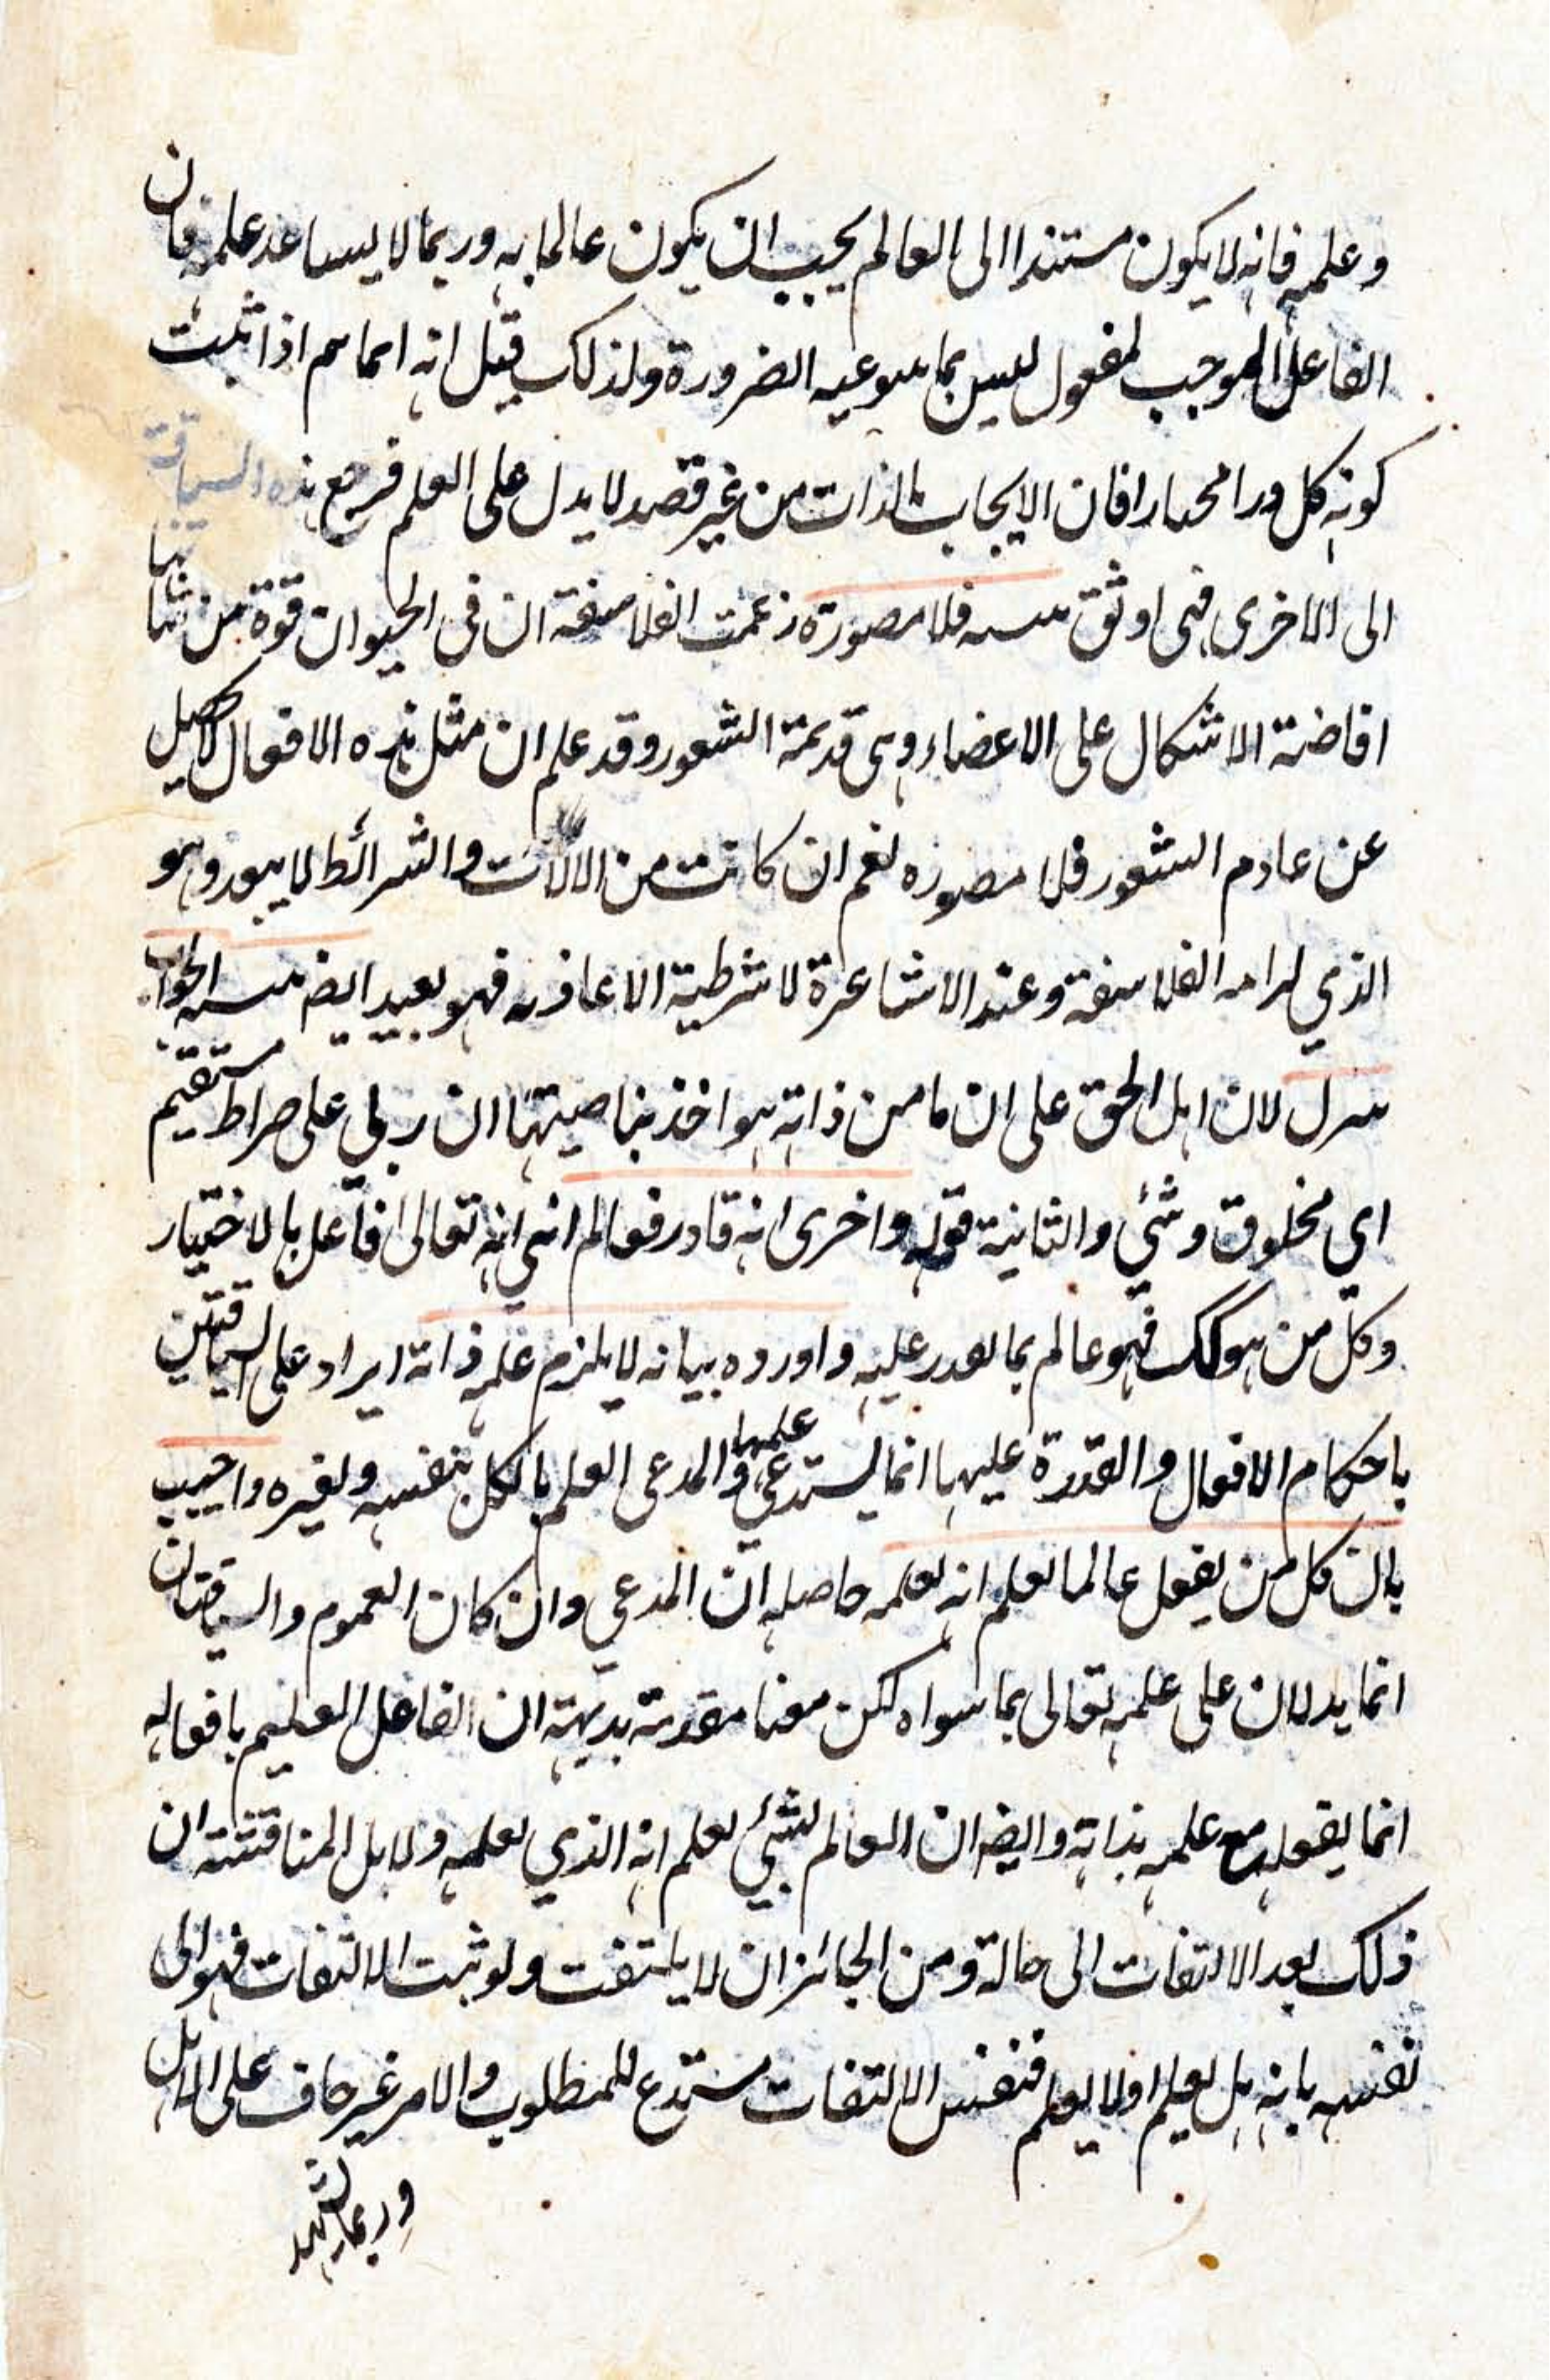 وعلمه فانه لا يكون مستندا الى العالم يجب ان يكون عالما به وربما لا يساعد علمه فان
الفاعل الموجب لمفعول ليس بما الضرورة ولذلك قيل انه اذا ثبت
كونه افان الايجاب بالذات من غير قصد لا يدل على العلم فرجع هذه السياقة
الى الاخرى فهى اوثق منه فلا مصورة زعمت الفلاسفة ان فى الحيوان قوة من شانها
افاضة الاشكال على الاعضاء وهى قديمة الشعور وقد علم ان مثل هذه الافعال لا يحصل
عن عادم الشعور فلا مصوره نعم ان كانت من الالات والشرائط لا يبعد وهو
الذي الفلاسفة وعند الاشاعرة لا شرطية الا عاذيه فهو بعيد ايضا منه الجواب
لان اهل الحق على ان ما من دابة هو اخذ بناصيتها ان ربي على صراط مستقيم
اي مخلوق وشئي والثانية قوله واخرى انه قادر فعالم انهي انه تعالى فاعل بالاختيار
وكل من هو كك فهو عالم بما يقدر عليه واورده بيانه لا يلزم علمه ذاته ايراد على السياقتين
باحكام الافعال والقدرة عليها انما يستدعي علمها والمدعى العلم بالكل بنفسه ولغيره واجيب
بان كل من يفعل عالما يعلم انه يعلمه حاصله ان المدعي وان كان العموم والسياقتان
انما يدلان على علمه تعالى بما سواه لكن معنا مقدمة بديهة ان الفاعل العليم بافعاله
انما يفعله مع علمه بذاته وايضا ان العالم لشئي يعلم انه الذي يعلمه ولاهل المناقشة ان
ذلك بعد الالتفات الى حالة ومن الجائز ان لا يلتفت ولو ثبت الالتفات فهو الى
نفسه بانه هل يعلم اولا يعلم فنفس الالتفات مستدع للمطلوب والامر غير خاف على الاهل
وربما